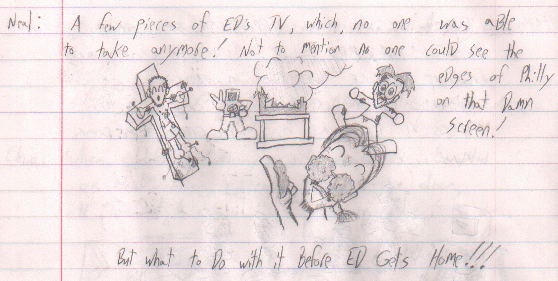 Neal: A few pieces of ED's TV, which, no one was aBle
to take anymore! Not to mention no one coulD see the
eDges of Philly
on that Damn
screen!
But what to Do with it Before ED Gets Home!!!